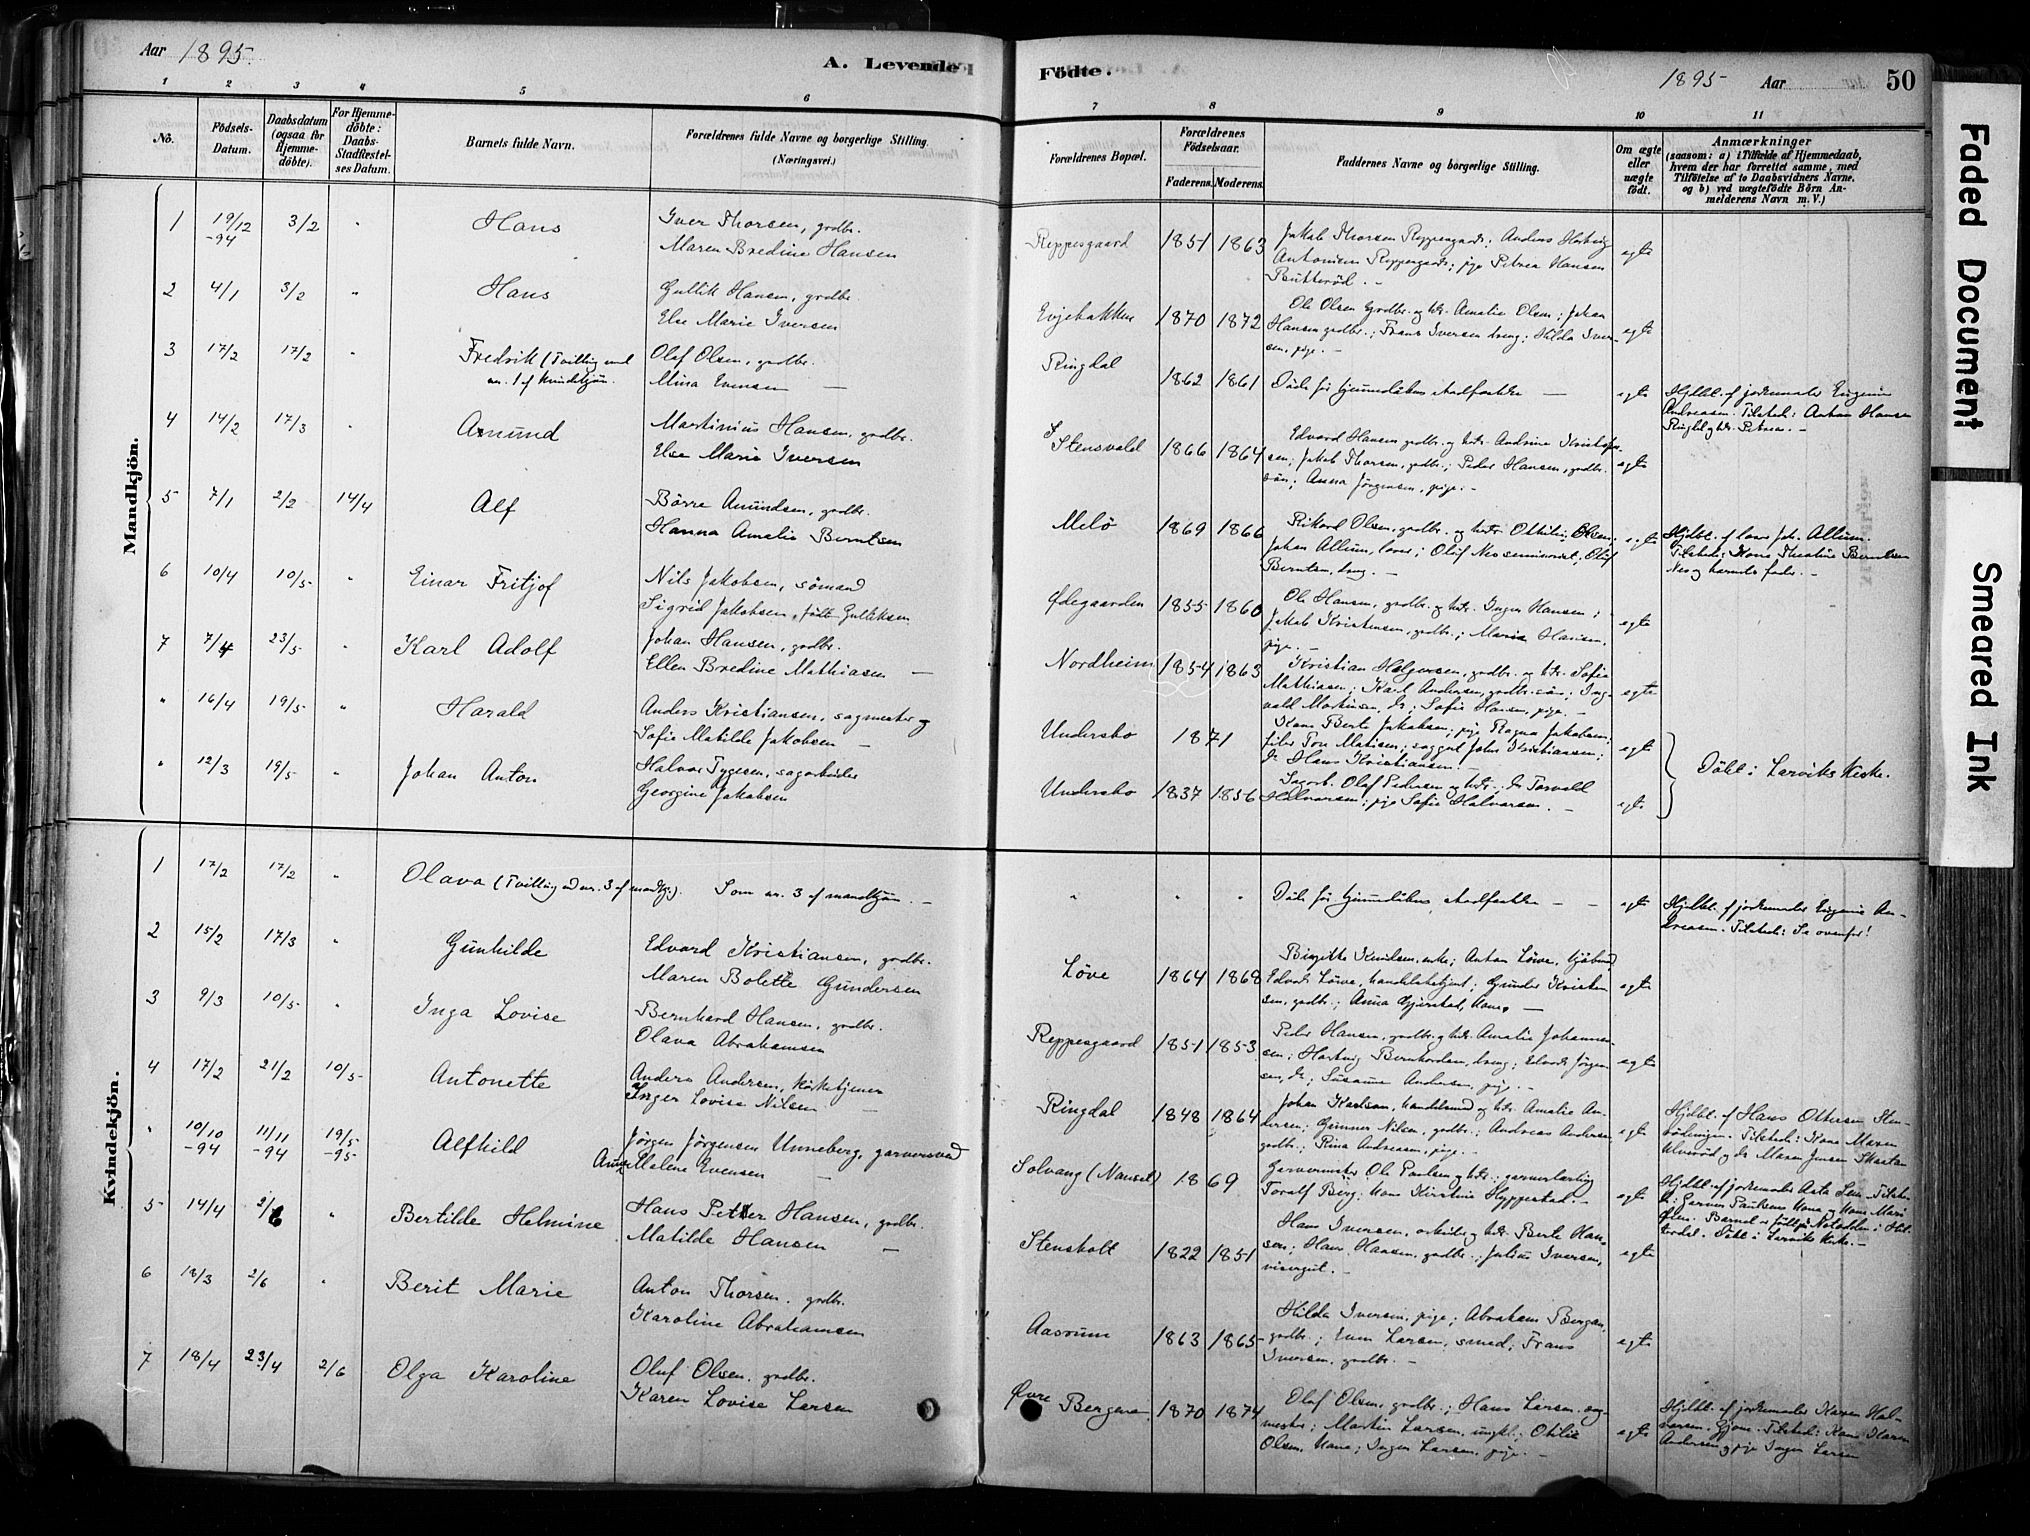 Aar 1895.
A. Levende Fødte.
1895 Aar 50
1 2 3 4 5 6 7 8 9 10 11
No.
Fødsels-Datum.
Daabsdatum (ogsaa for Hjemmedøbte).
For Hjemmedøbte: Daabs-Stadfæstelses Datum.
Barnets fulde Navn.
Forældrenes fulde Navne og borgerlige Stilling.
(Næringsvei.)
Forældrenes Bopæl.
Forældrenes Fødselsaar.
Faderens. Moderens.
Faddernes Navne og borgerlige Stilling.
Om ægte eller uægte født.
Anmærkninger
(saasom: a) i Tilfælde af Hjemmedaab,
hvem der har forrettet samme, med
Tilføielse af to Daabsvidners Navne,
og b) ved uægtefødte Børn Anmelderens Navn m. V.)
Mandkjön.
1 19/12 -94 3/2 " Hans Iver Thorsen, grdbr.
Maren Bredine Hansen
Reppesgaard 1851 1863 Jakob Thorsen Reppesgaard; Anders Hartvig
Antonisen Reppesgaard; pige Petrea Hansen
egte
2 4/1 3/2 " Hans Gullik Hansen, grdbr.
Else Marie Iversen
Evjebakken 1870 1872 Ole Olsen grdbr. og hstr. Amalie Olsen; Johan
Hansen grdbr.; Frans Iversen dreng; Hilda Iversen, pige. -
egte
3 17/2 17/2 " Fredrik (Tvilling med
nr. 1 af kvindekjøn.
Olaf Olsen, grdbr.
Mina Evensen -
Ringdal 1862 1861 Døde før hjemmedåbens stadfæstelse - egte
Hjdbt. af jordemoder Eugenie
Andreasen. Tilsted: Anton Hansen
Ringdal og hstr. Petrea. -
4 14/2 17/3 Amund Martinius Hansen, grdbr.
Else Marie Iversen
Stensvald 1866 1864 Edvard Hansen grdbr. og hstr. Andrine Kristofersen; Jakob Thorsen, grdbr.; Peder Hansen, grdbr.
søn; Anna Jørgensen, pige. -
egte
5 7/1 2/2 14/4 Alf Börre Amundsen, grdbr.
Hanna Amalie Berntsen
Melö 1869 1866 Rikard Olsen, grdbr. og hstr. Othilie Olsen;
Johan Allum, lærer; Olaf Nes seminarist; Oluf
Berntsen, dreng. -
egte
Hjdbt. af lærer Joh. Allum.
Tilsted: Kone Theoline Berntsen
Nes og barnets fader. -
6 10/4 10/5 " Einar Fritjof Nils Jakobsen, sömand
Sigrid Jakobsen, født Gulliksen
Ødegaarden 1855 1860 Ole Hansen, grdbr. og hstr. Inger Hansen;
Jakob Kristensen, grdbr.; Marie Hansen,
pige. -
egte
7 7/4 23/5 " Karl Adolf Johan Hansen, grdbr.
Ellen Bredine Mathiasen -
Nordheim 1854 1863 Kristian Holgersen, grdbr. og hstr. Sofie
Mathiasen; Karl Andersen, grdbr. søn; Ingvald Martinsen, do; Sofie Hansen, pige. -
egte
" 16/4 19/5 " Harald Anders Kristiansen, sagmester og
Sofie Matilde Jakobsen -
Undersbo 1871 Kone Berte Jakobsen; pige Ragna Jakobsen;
do Hans Kristiansen. -
egte
" 12/3 19/5 " Johan Anton Halvor Tygesen, sagarbeider
Georgine Jakobsen
Undersbo 1837 1856 Sagarb. Olaf Pedersen og hstr.; do Torvald
Halvorsen; pige Sofie Halvorsen. -
egte
Döbt i Larviks Kirke.
Kvindekjön.
1 17/2 17/2 " Olava (Tvilling md nr. 3 af mandkj.). Som nr. 3 af mandkjøn. -
" " " Døde før hjemmedåbens stadfæstelse - - egte
Hjdbt. af jordemoder Eugenie Andreasen. Tilsted: Se ovenfor!
2 15/2 17/3 " Gunhilde Edvard Kristiansen, grdbr.
Maren Bolette Gundersen
Löve 1864 1868 Birgitte Knudsen, enke; Anton Löwe, kjøbmd
Edvard Löwe, handelsbetjent; Gunder Kristensen, grdbr.; Anna Gjerstad, kone. -
egte
3 9/3 10/5 " Inga Lovise Bernhard Hansen, grdbr.
Olava Abrahamsen
Reppesgaard 1851 1853 Peder Hansen, grdbr. og hstr. Amalie Johannesen; Hartvig Bernhardsen, dreng; Edvard Jørgensen, do; Susanne Andersen, pige. -
egte
4 17/2 21/2 10/5 Antonette Anders Andersen, kirketjener
Inger Lovise Nilsen -
Ringdal 1848 1864 Johan Karlsen, handelsmd og hstr. Amalie Andersen; Gunner Nilsen, grdbr.; Andreas Andersen
grdbr.; Rina Andresen, pige. -
egte
Hjdbt. af Hans Ottersen Stenbølingen. Tilsted: Kone Maren
Ulverød og do Maren Jensen Skaatan
" 10/10 -94 11/11 -94 19/5 -95 Alfhild Jörgen Jörgensen Unneberg, garversvend
Anne Malene Evensen -
Solvang (Nanset) 1869 Garvermester Ole Paulsen og hstr.; garverlærling
Toralf Berg; kone Kirstine Hyppestad. -
egte
Döbt i Larviks Kirke. -
5 14/4 2/6 " Bertilde Helmine Hans Petter Hansen, grdbr.
Matilde Hansen -
Stensholt 1822 1851 Hans Iversen, arbeider og hstr. Berte Hansen; Hans Hansen, grdbr.; Julius Iversen,
visergut. -
egte
6 18/3 2/6 " Berit Marie Anton Thorsen, grdbr.
Karoline Abrahamsen
Aasrum 1863 1865 Hilda Iversen, pige; Abraham Bergan,
grdbr.; Even Larsen, smed; Frans
Iversen, grdbr. -
egte
7 18/4 23/4 2/6 Olga Karoline Oluf Olsen, grdbr.
Karen Lovise Larsen
Øvre Bergene 1870 1874 Olaf Olsen, grdbr.; Hans Larsen, sagmester; Martin Larsen, ungkl.; Otilie
Olsen, kone; Inger Larsen, pige. -
egte
Hjdbt. af jordemoder Karen Halvorsen, Gjone. Tilsted: Kone Karen
Andersen og pige Inger Larsen
Faded Document
Smeared Ink